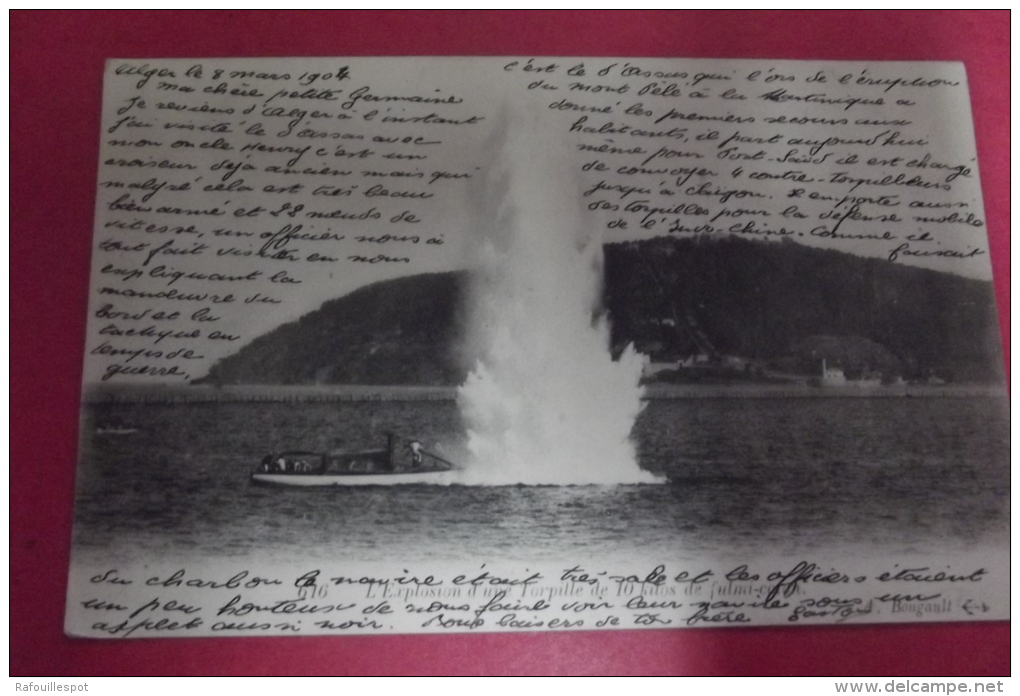 Alger le 8 mars 1904
ma chère petite Germaine
Je reviens d'Alger à l'instant
j'ai visité le d'assas avec
mon oncle Henry c'est un
croiseur déjà ancien mais qui
malgré cela est très beau
bien armé et 22 nœuds de
vitesse, un officier nous à
tout fait visiter en nous
expliquant la
manœuvre du
bord et la
tactique en
temps de
guerre,
c'est le d'Assas qui l'ors de l'éruption
du mont Pélé à la Martinique a
donné les premiers secours aux
habitants, il part aujourd'hui
même pour Port-Saïd il est chargé
de convoyer 4 contre-torpilleurs
jusqu'à Saïgon. Il emporte aussi
des torpilles pour la défense mobile
de l'Indo-Chine. Comme il
faisait
du charbon le navire était très sale et les officiers étaient
616 L'Explosion d'une Torpille de 10 kilos de fulmi-coton.
un peu honteux de nous faire voir leur navire sous un
Bougault
aspect aussi noir. Bons baisers de ton frère Gaston
Rafouillespot
www.delcampe.net